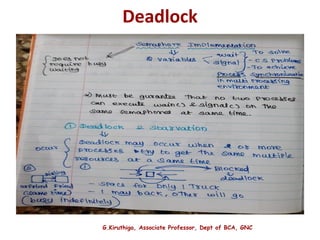 Deadlock
Semaphore Implementation
Does not
require busy
waiting
2 variables
wait
signal
To solve
- C.S Problem
- To achieve
Process Synchronization
in multi processing
environment
Must be gurantee That no two processes
can execute wait() & signal() on The
same semaphores at same time.
① Deadlock & Starvation
occur
Deadlock may occur when 2 or more
processes try to get The same multiple
resources at a same time
Blocked
deadlock
(same time)
- Space for only 1 Truck
- 1 may back, other will go
(busy indefinitely)
G.Kiruthiga, Associate Professor, Dept of BCA, GNC